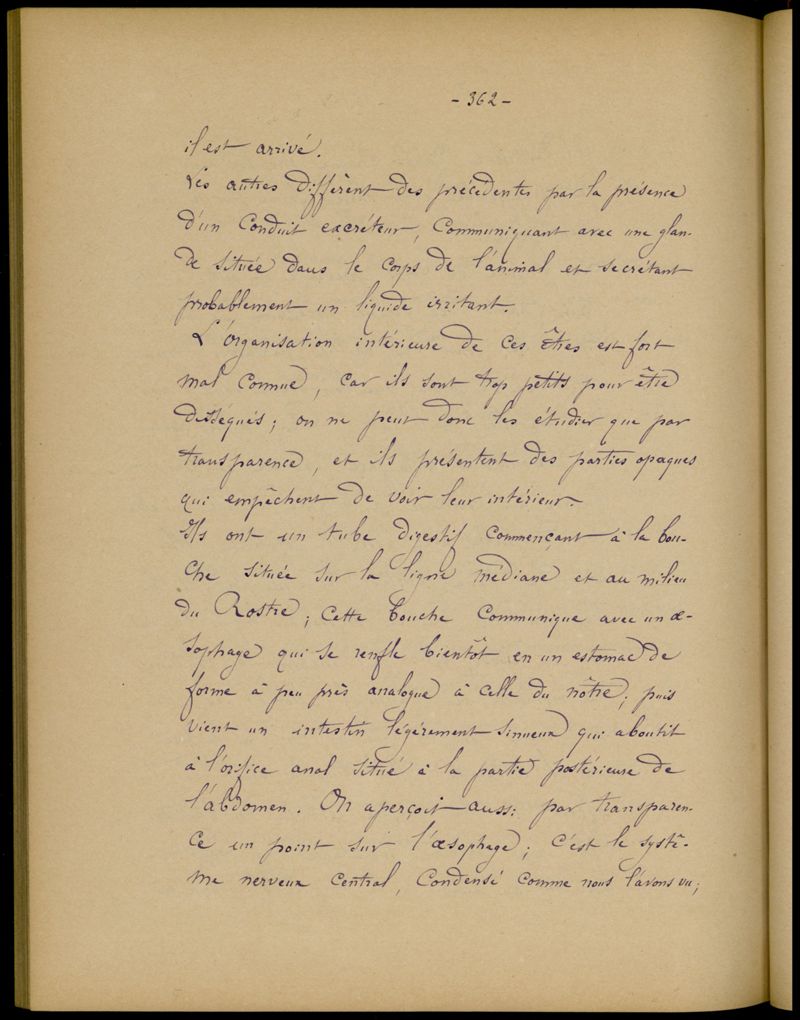 - 362 -
il est arrivé.
Les autres diffèrent des précédentes par la présence
d'un conduit excréteur, communiquant avec une glan-
de située dans le corps de l'animal et secrétant
probablement un liquide irritant.
L'organisation intérieure de ces êtres est fort
mal connue, car ils sont trop petits pour être
disséqués; on ne peut donc les étudier que par
transparence, et ils présentent des parties opaques
qui empêchent de voir leur intérieur.
Ils ont un tube digestif commençant à la bou-
che située sur la ligne médiane et au milieu
du Rostre; cette bouche communique avec un œ-
sophage qui se renfle bientôt en un estomac de
forme à peu près analogue à celle du nôtre; puis
vient un intestin légèrement sinueux qui aboutit
à l'orifice anal situé à la partie postérieure de
l'abdomen. On aperçoit aussi par transparen-
ce un point sur l'œsophage; c'est le systè-
me nerveux central, condensé comme nous l'avons vu;